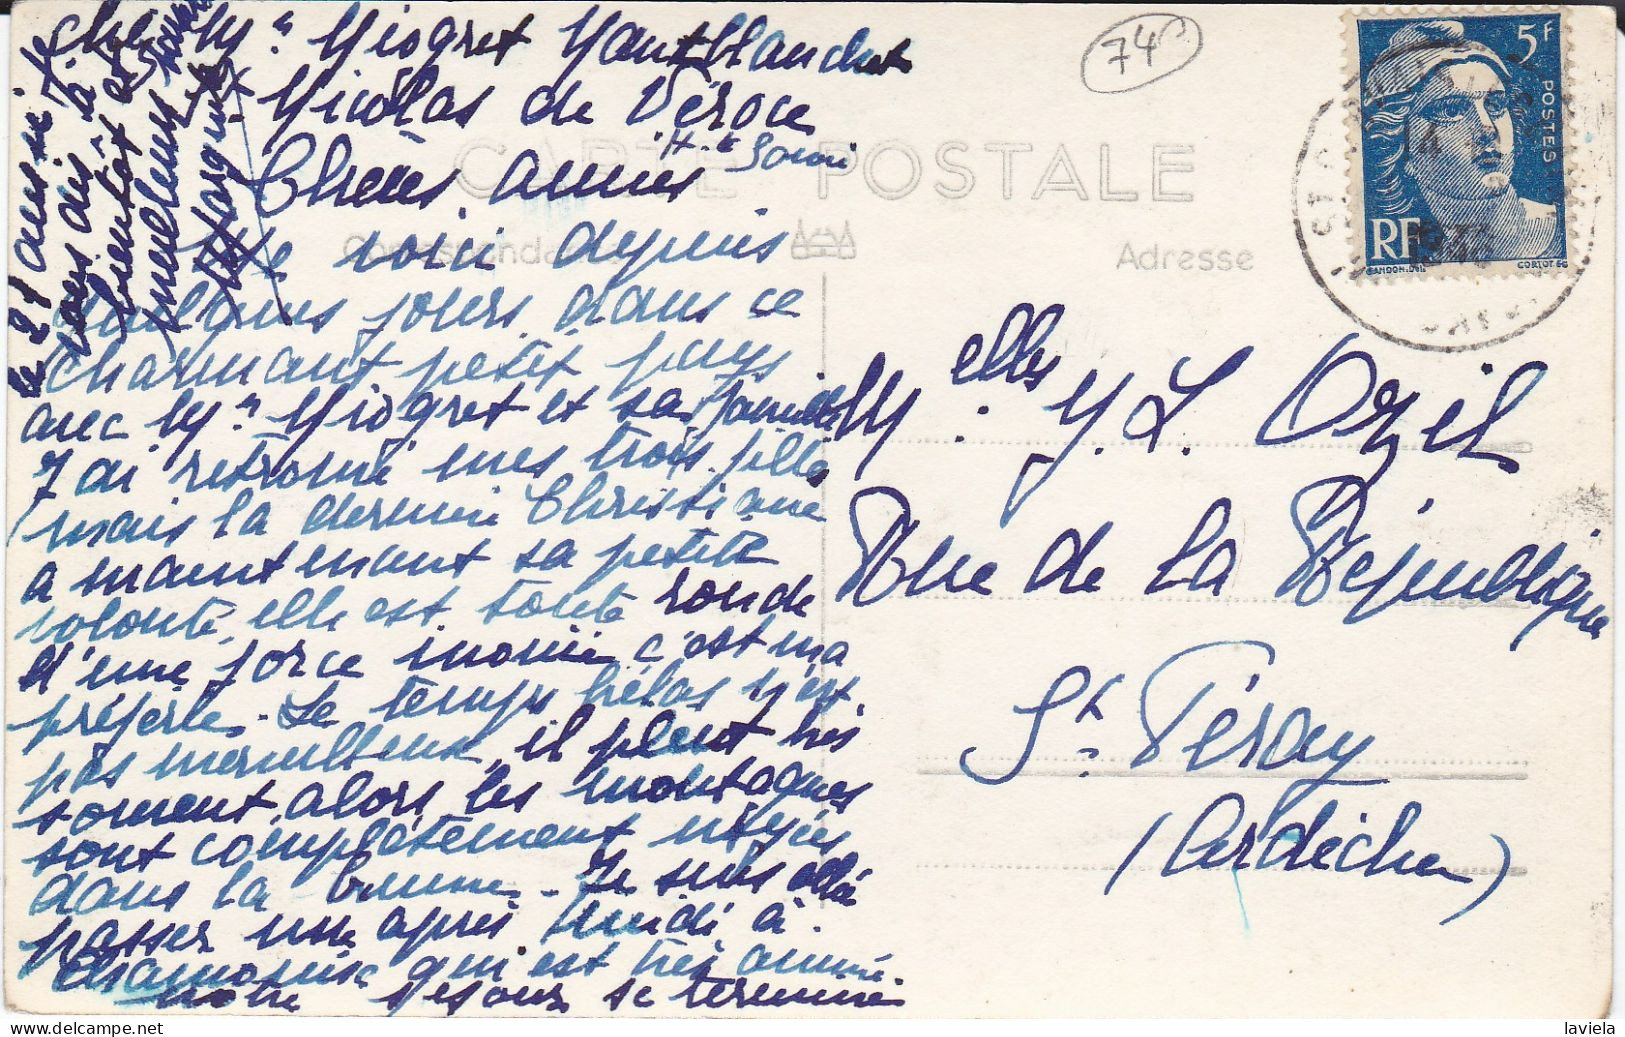 chez Mme Miogret Montblanchet
St Nicolas de Véroce
Hte Savoie
Chères amies
Je suis depuis
quelques jours dans ce
charmant petit pays
avec Mme Miogret et sa famille
J'ai retrouvé mes trois filles
mais la dernière Christiane
a maintenant sa petite
volonté, elle est toute ronde
d'une force inouïe c'est ma
préférée. Le temps hélas n'est
pas merveilleux, il pleut très
souvent, alors les montagnes
sont complètement noyées
dans la brume. Je suis allée
passer une après midi à
Chamonix qui est très animé.
notre séjour se termine
le 21 aussi je
vous dis à
bientôt et
meilleurs
Marguerite
74
CARTE POSTALE
Correspondance
Adresse
5F
POSTES
RF
GANDON DEL
CORTOT SC
Melles Y. L. Ozil
Rue de la République
St. Péray
(Ardèche)
laviela